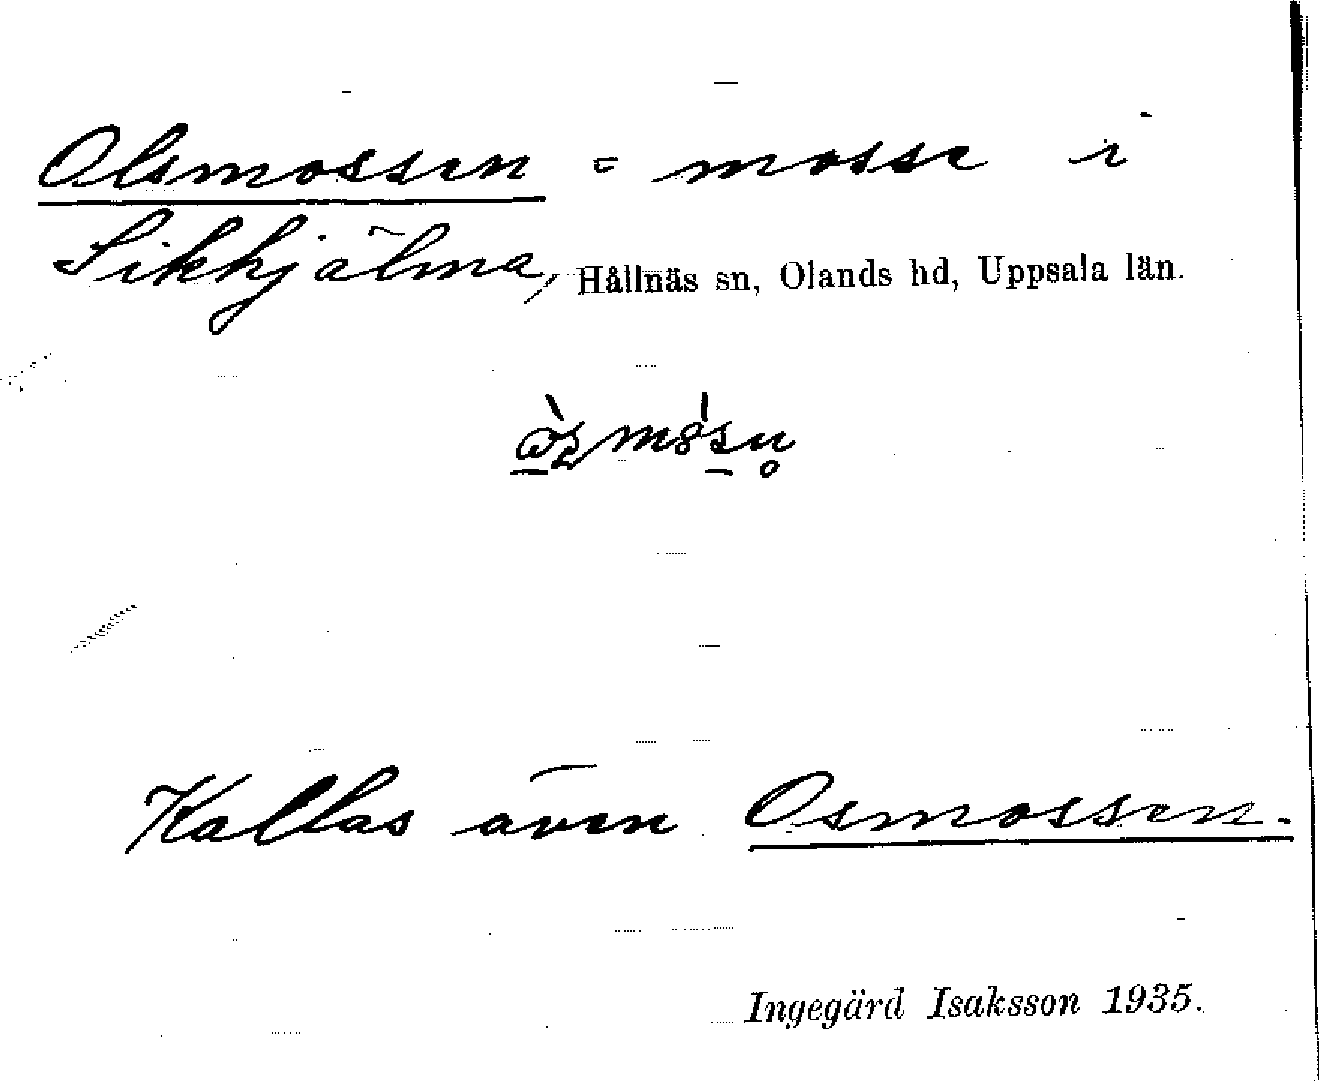 Olsmossen = mosse i
Sikhjälma, Hållnäs sn, Olands hd, Uppsala län.
Kallas även Osmossen.
Ingegärd Isaksson 1935.